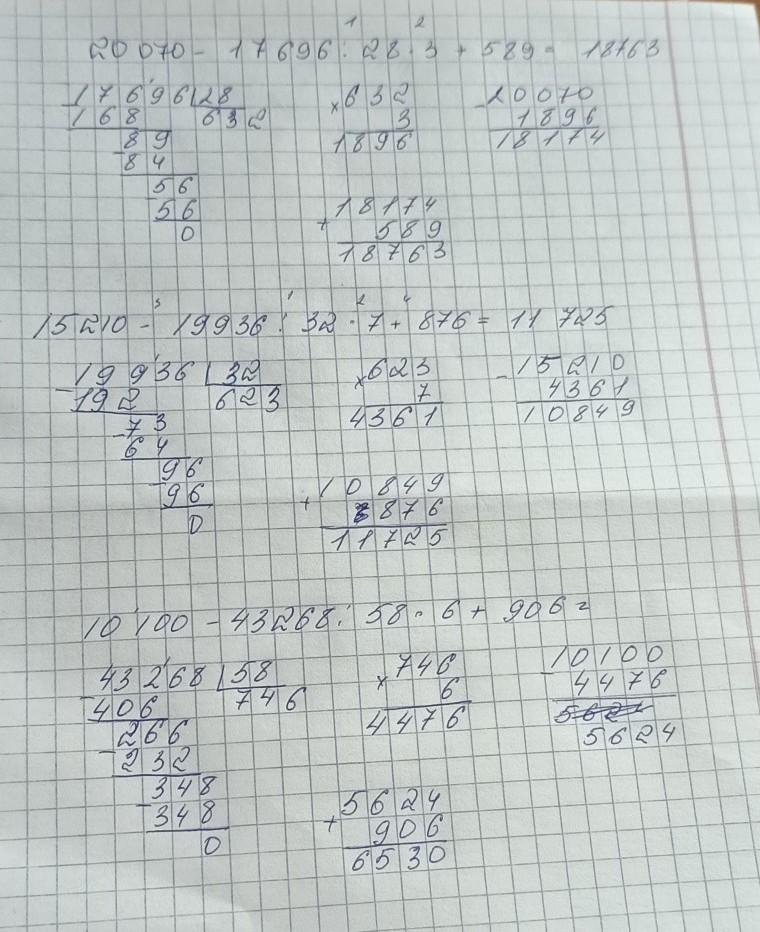 1 2
20 070 - 17 696 : 28 · 3 + 589 = 18763
- 17696 28 × 632 - 20070
168 632 3 1896
89 1896 18174
- 84
56 + 18174
- 56 589
0 18763
3 1 2 4
15210 - 19936 : 32 · 7 + 876 = 11 725
- 19936 32 × 623 - 15210
192 623 7 4361
- 73 4361 10849
64
- 96 + 10849
96 876
0 11725
10 100 - 43268 : 58 · 6 + 906 =
- 43268 58 × 746 - 10100
406 746 6 4476
- 266 4476
232 5624
- 348
348 + 5624
0 906
6530